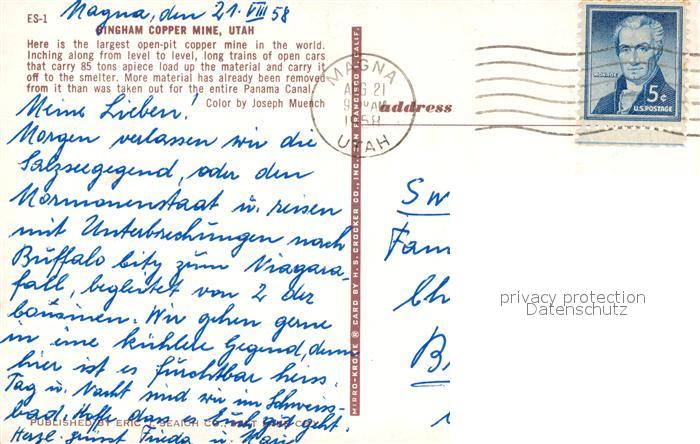 Magna, den 21. VIII 58
ES-1
BINGHAM COPPER MINE, UTAH
Here is the largest open-pit copper mine in the world.
Inching along from level to level, long trains of open cars
that carry 85 tons apiece load up the material and carry it
off to the smelter. More material has already been removed
from it than was taken out for the entire Panama Canal.
Color by Joseph Muench
Meine Lieben!
Morgen verlassen wir die
Salzseegegend, oder den
Mormonenstaat u. reisen
mit Unterbrechungen nach
Buffalo City zum Niagara-
fall, begleitet von 2 der
Cousinen. Wir gehen gerne
in eine kühlere Gegend, denn
hier ist es furchtbar heiss.
Tag u. Nacht sind wir im Schweiss-
bad. Hoffe dass es Euch gut geht.
Herzl. grüsst Frieda u.
PUBLISHED BY ERIC J. SEAICH CO.,
MIRRO-KROME ® CARD BY H. S. CROCKER CO., INC., SAN FRANCISCO 1, CALIF.
MAGNA
AUG 21
1958
UTAH
address
MONROE
5¢
U.S. POSTAGE
Sw
Fam
Ch
B
privacy protection
Datenschutz